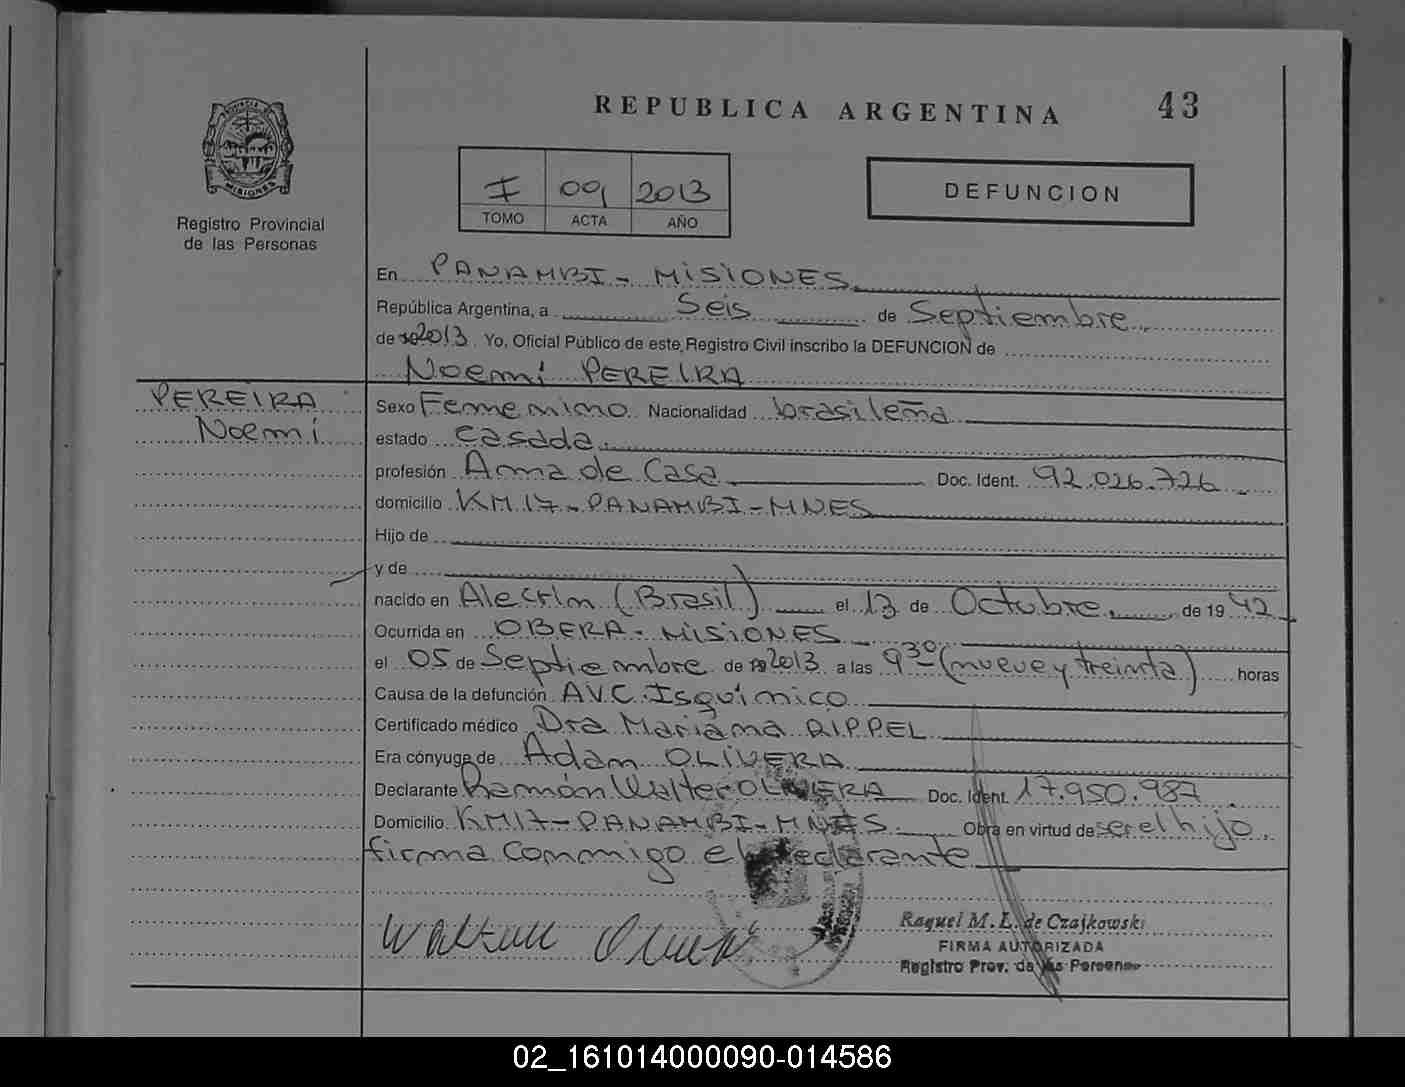 REPUBLICA ARGENTINA 43
PROVINCIA DE MISIONES
Registro Provincial
de las Personas
I 09 2013
TOMO ACTA AÑO
DEFUNCION
En PANAMBI - MISIONES
República Argentina, a Seis de Septiembre
de 2013. Yo, Oficial Público de este Registro Civil inscribo la DEFUNCION de
Noemí PEREIRA
PEREIRA
Noemí
Sexo Femenino Nacionalidad brasileña
estado casada
profesión Ama de Casa Doc. Ident. 92.026.726
domicilio KM 17 - PANAMBI - MNES
Hijo de
y de
nacido en Alecrin (Brasil) el 13 de Octubre de 1942
Ocurrida en OBERA - MISIONES
el 05 de Septiembre de 2013 a las 9 30 (nueve y treinta) horas
Causa de la defunción AVC Isquímico
Certificado médico Dra Mariana RIPPEL
Era cónyuge de Adam OLIVERA
Declarante Ramón Walter OLIVERA Doc. Ident. 17.950.987
Domicilio KM17 - PANAMBI - MNES Obra en virtud de ser el hijo.
firma conmigo el declarante
Raquel M. L. de Czajkowski
FIRMA AUTORIZADA
Registro Prov. de las Personas
02_161014000090-014586